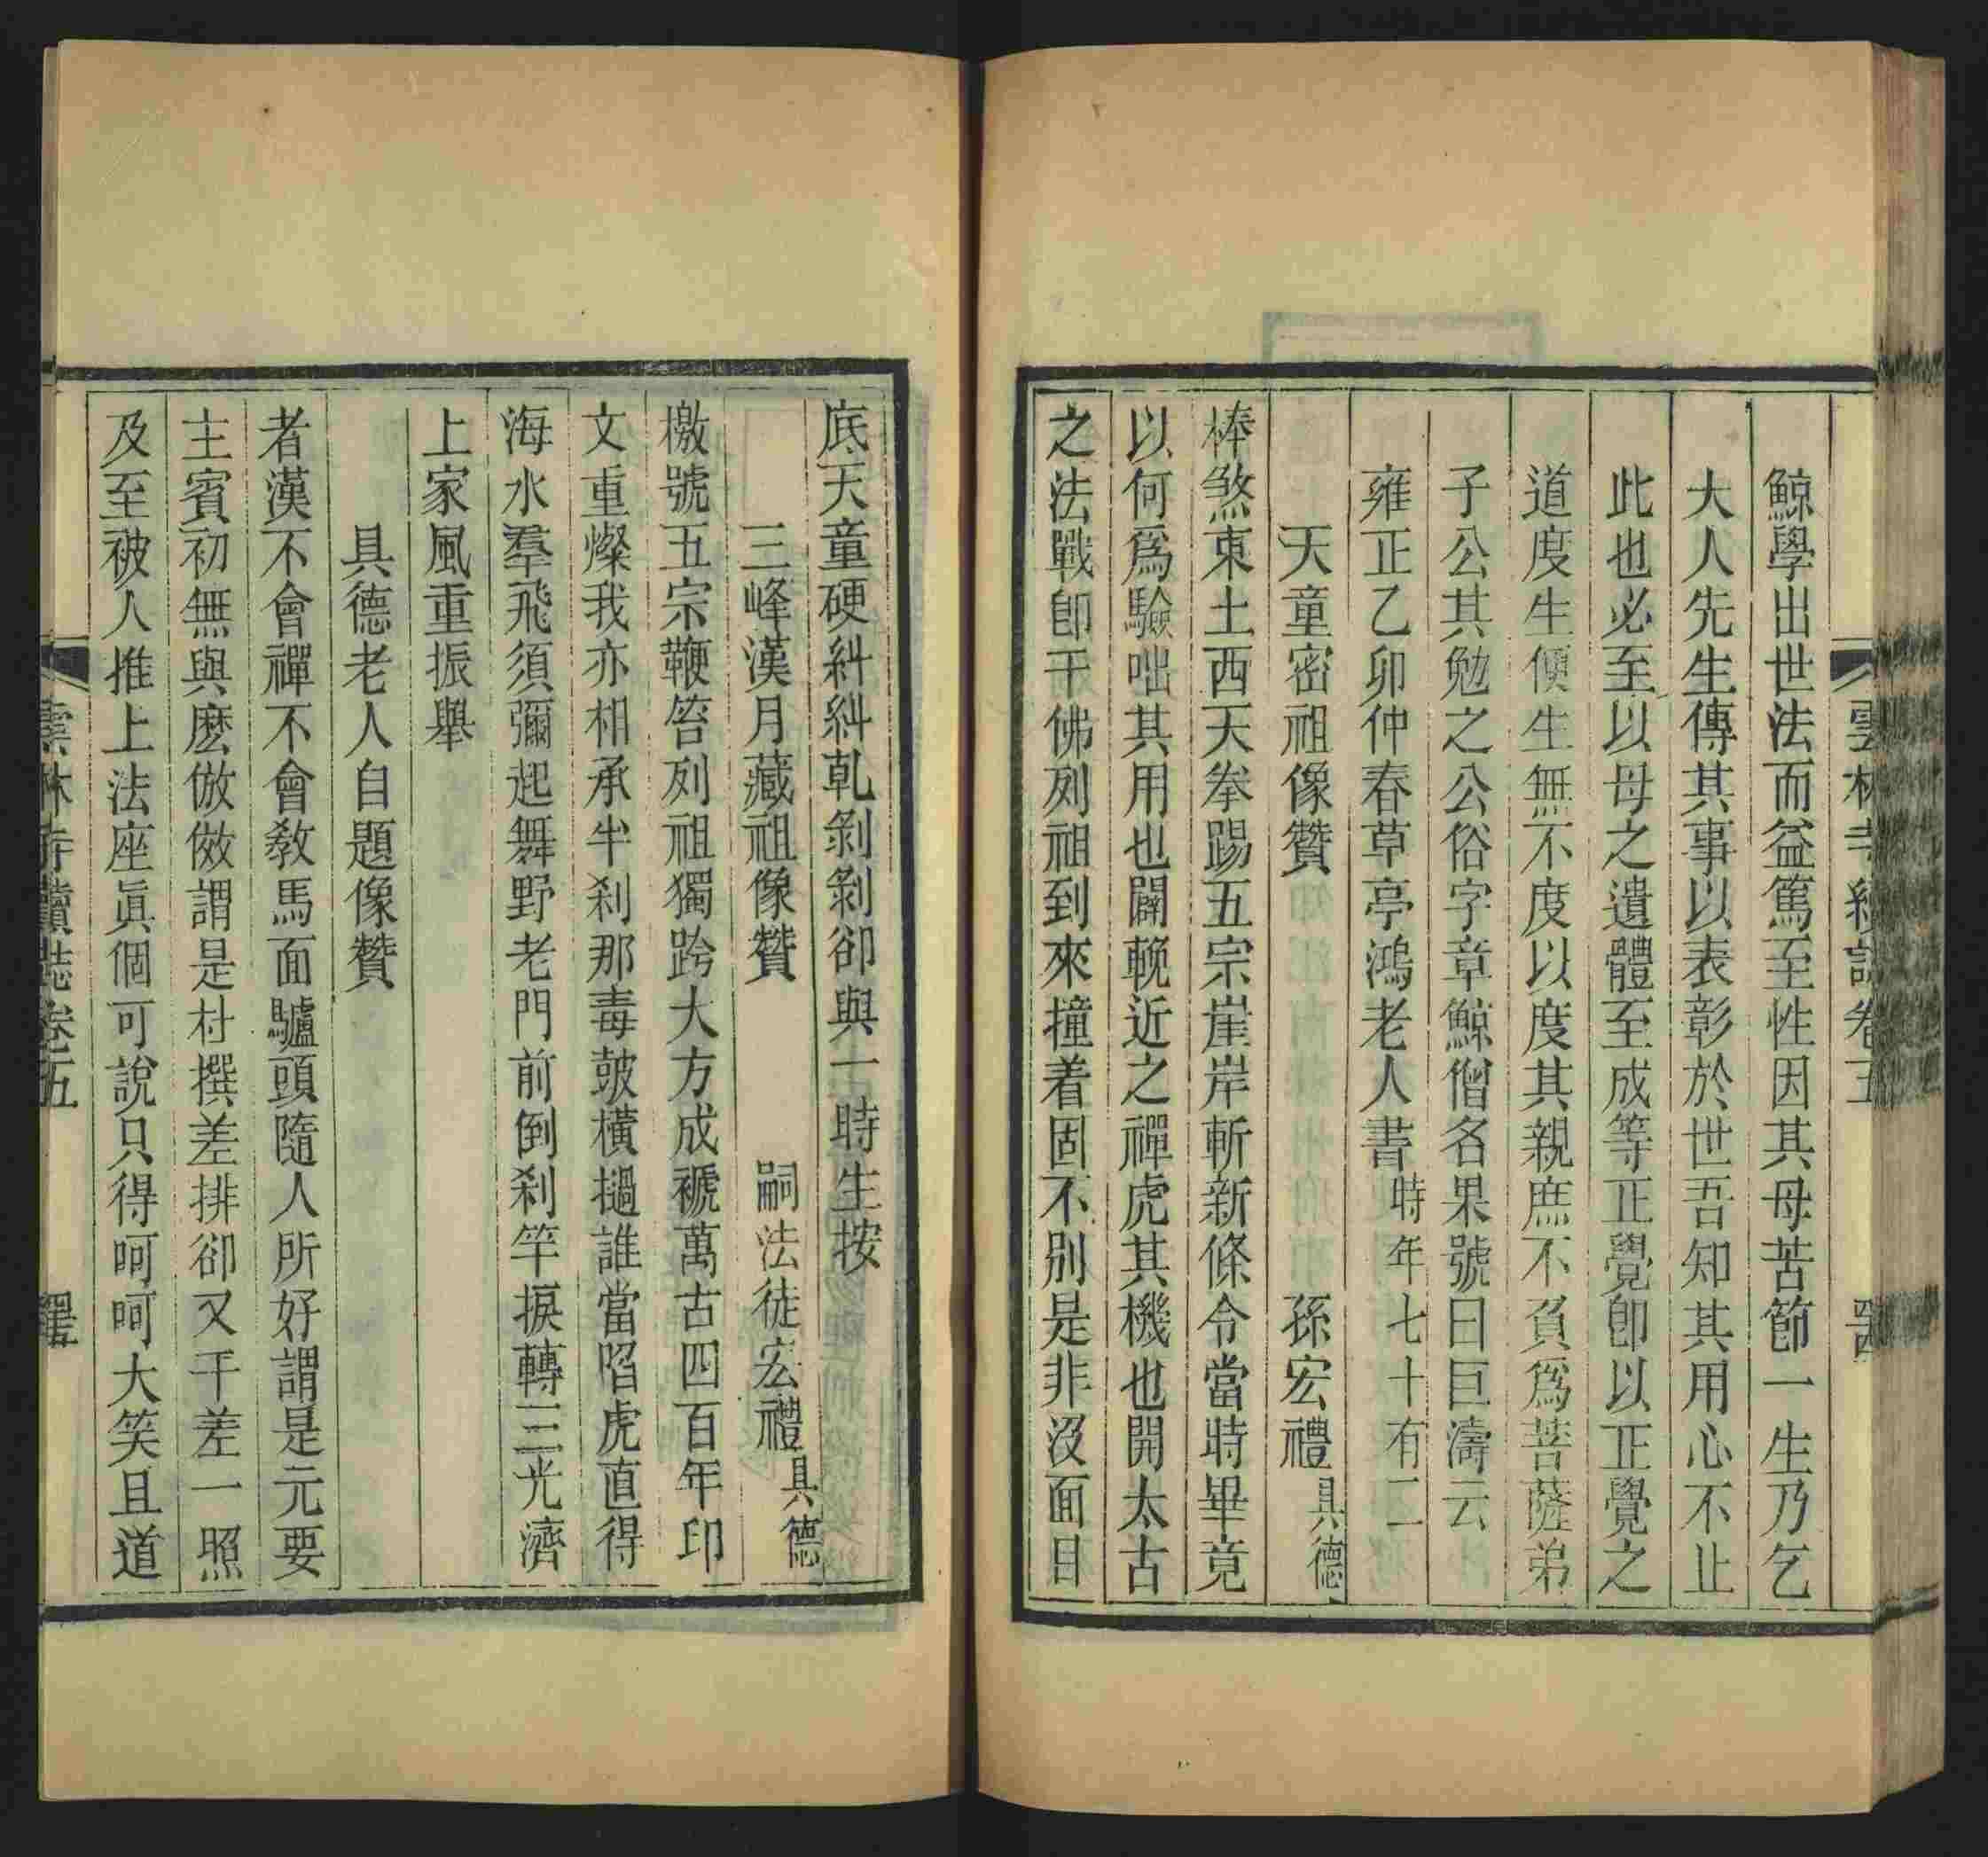 雲林寺續誌卷五
鯨學出世法而益篤至性因其母苦節一生乃乞
大人先生傳其事以表彰於世吾知其用心不止
此也必至以母之遺體至成等正覺卽以正覺之
道度生便生無不度以度其親庶不負爲菩薩弟
子公其勉之公俗字章鯨僧名果號曰巨濤云
雍正乙卯仲春草亭鴻老人書時年七十有二
天童密祖像贊 孫宏禮具德
棒煞東土西天拳踢五宗崖岸斬新條令當時畢竟
以何爲驗咄其用也闢輓近之禪虎其機也開太古
之法戰卽千佛列祖到來撞着固不別是非沒面目
底天童硬糾糾乾剝剝卻與一時生按
三峰漢月藏祖像贊 嗣法徒宏禮具德
檄號五宗鞭笞列祖獨跨大方成褫萬古四百年印
文重燦我亦相承半刹那毒皷橫撾誰當䧟虎直得
海水羣飛須彌起舞野老門前倒刹竿捩轉三光濟
上家風重振舉
具德老人自題像贊
者漢不會禪不會敎馬面驢頭隨人所好謂是元要
主賓初無與麽倣傚謂是杜撰差排卻又千差一照
及至被人推上法座眞個可說只得呵呵大笑且道
雲林寺續誌卷五